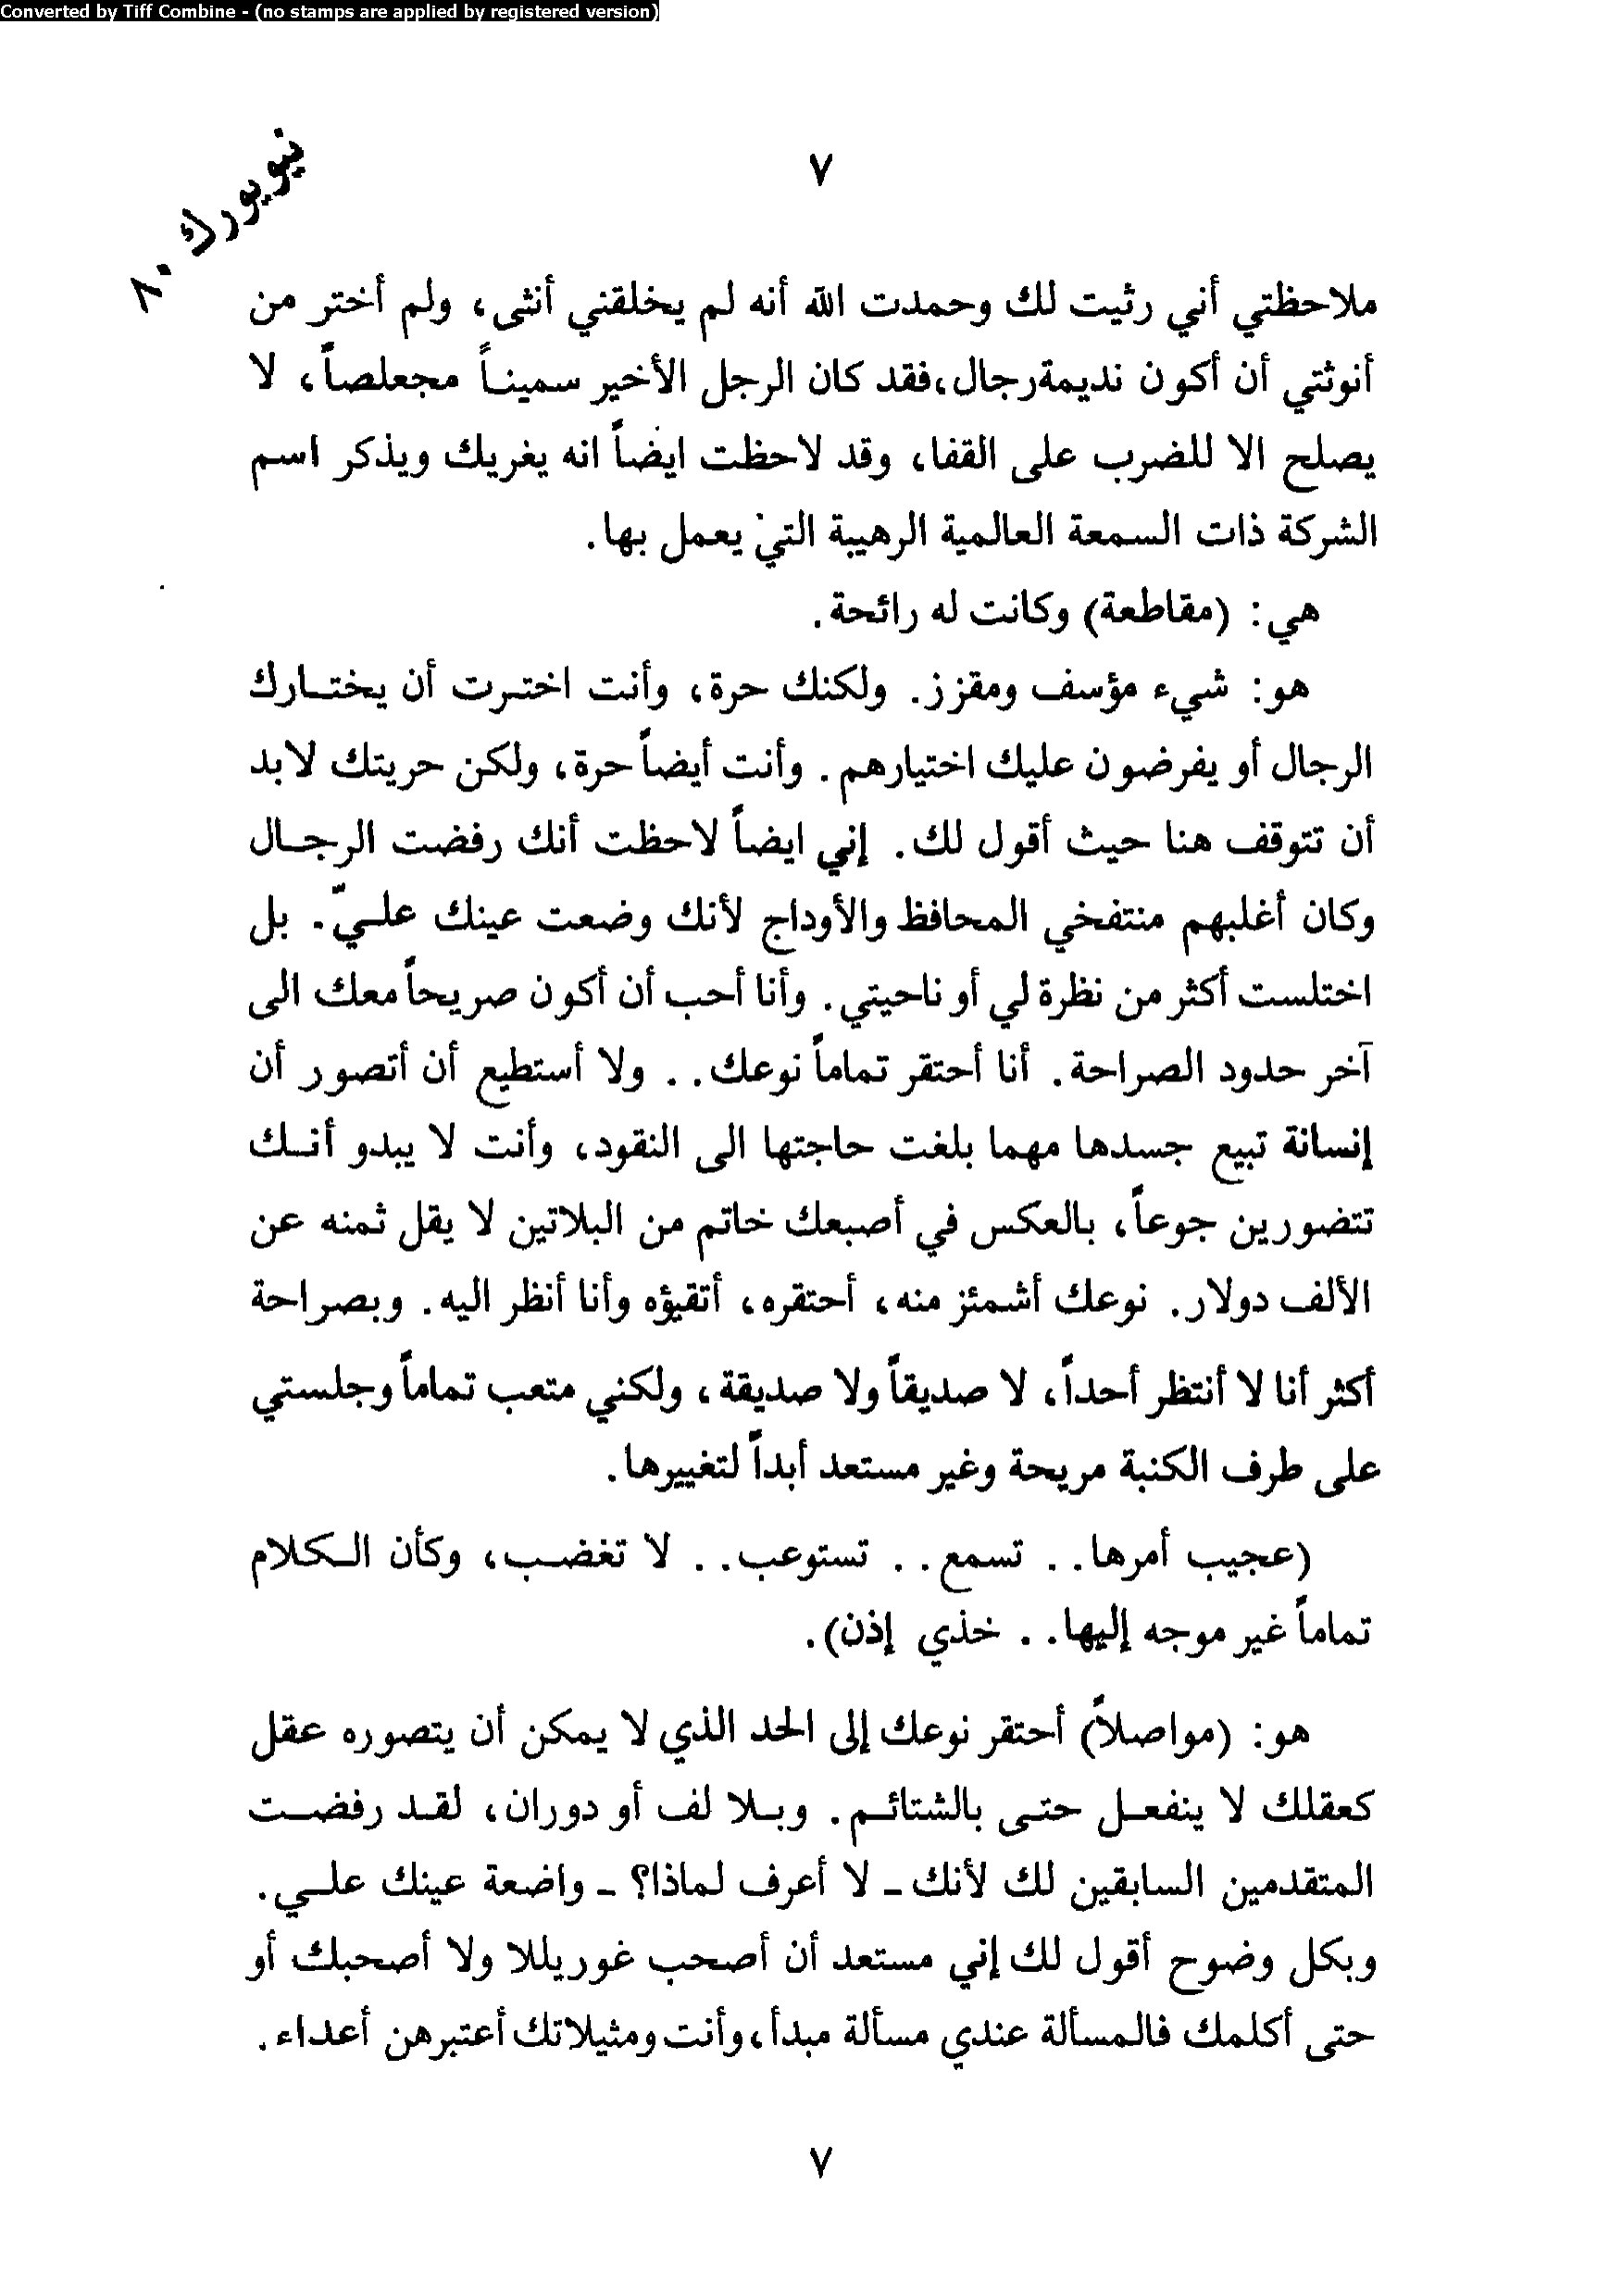 Converted by Tiff Combine - (no stamps are applied by registered version)
٧
نيويورك ٨٠
ملاحظتي أني رثيت لك وحمدت الله أنه لم يخلقني أنثى، ولم أختر من
أنوثتي أن أكون نديمة رجال، فقد كان الرجل الأخير سميناً مجعلصاً، لا
يصلح الا للضرب على القفا، وقد لاحظت ايضاً انه يغريك ويذكر اسم
الشركة ذات السمعة العالمية الرهيبة التي يعمل بها.
هي: (مقاطعة) وكانت له رائحة.
هو: شيء مؤسف ومقزز. ولكنك حرة، وأنت اخترت أن يختارك
الرجال أو يفرضون عليك اختيارهم. وأنت أيضاً حرة، ولكن حريتك لابد
أن تتوقف هنا حيث أقول لك. إني ايضاً لاحظت أنك رفضت الرجال
وكان أغلبهم منتفخي المحافظ والأوداج لأنك وضعت عينك عليّ. بل
اختلست أكثر من نظرة لي أو ناحيتي. وأنا أحب أن أكون صريحاً معك الى
آخر حدود الصراحة. أنا أحتقر تماماً نوعك.. ولا أستطيع أن أتصور أن
إنسانة تبيع جسدها مهما بلغت حاجتها الى النقود، وأنت لا يبدو أنك
تتضورين جوعاً، بالعكس في أصبعك خاتم من البلاتين لا يقل ثمنه عن
الألف دولار. نوعك أشمئز منه، أحتقره، أتقيؤه وأنا أنظر اليه. وبصراحة
أكثر أنا لا أنتظر أحداً، لا صديقاً ولا صديقة، ولكني متعب تماماً وجلستي
على طرف الكنبة مريحة وغير مستعد أبداً لتغييرها.
(عجيب أمرها.. تسمع.. تستوعب.. لا تغضب، وكأن الكلام
تماماً غير موجه إليها.. خذي إذن).
هو: (مواصلاً) أحتقر نوعك إلى الحد الذي لا يمكن أن يتصوره عقل
كعقلك لا ينفعل حتى بالشتائم. وبلا لف أو دوران، لقد رفضت
المتقدمين السابقين لك لأنك - لا أعرف لماذا؟ - واضعة عينك علي.
وبكل وضوح أقول لك إني مستعد أن أصحب غوريللا ولا أصحبك أو
حتى أكلمك فالمسألة عندي مسألة مبدأ، وأنت ومثيلاتك أعتبرهن أعداء.
٧